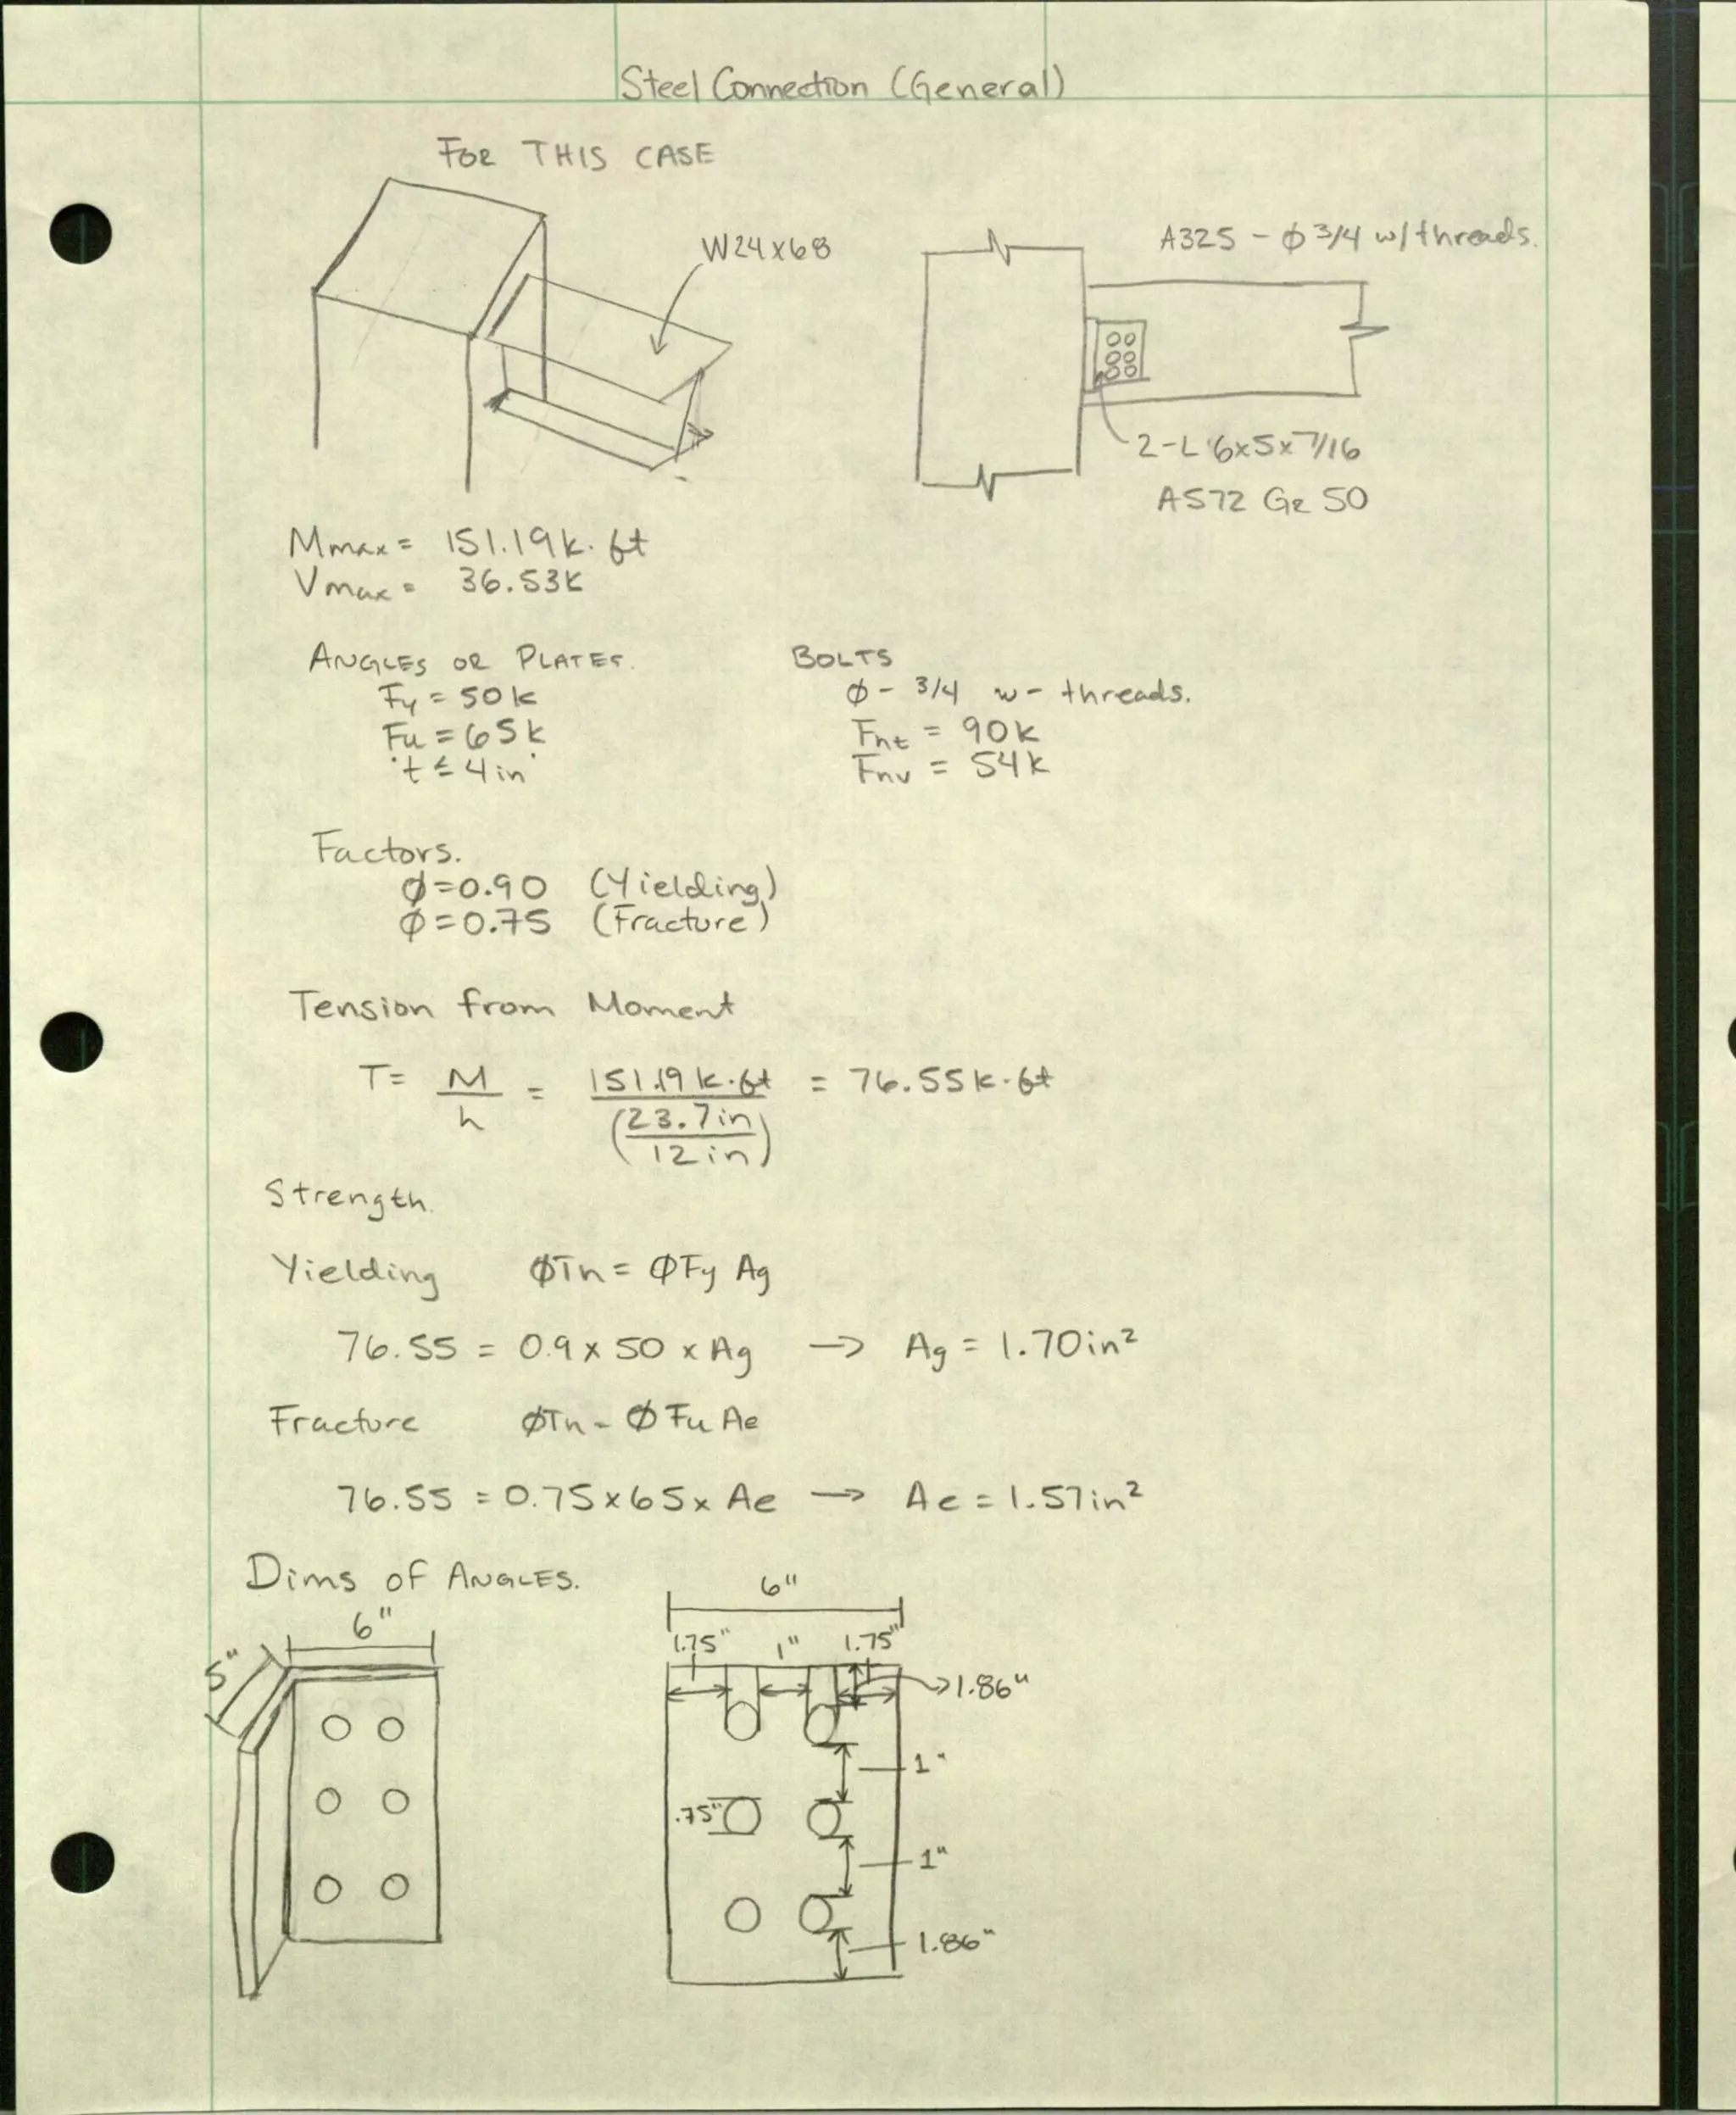 Steel Connection (General)
FOR THIS CASE
W24x68
A325 - φ 3/4 w/threads.
2-L 6x5x7/16
A572 GR 50
Mmax = 151.19k·ft
Vmax = 36.53k
ANGLES OR PLATES.
Fy = 50k
Fu = 65k
t ≤ 4in
BOLTS
φ - 3/4 w- threads.
Fnt = 90k
Fnv = 54k
Factors.
φ=0.90 (Yielding)
φ=0.75 (Fracture)
Tension from Moment
T= M/h = 151.19k·ft / (23.7in/12in) = 76.55k·ft
Strength.
Yielding φTn = φFy Ag
76.55 = 0.9 x 50 x Ag → Ag = 1.70in²
Fracture φTn = φFu Ae
76.55 = 0.75x65x Ae → Ae = 1.57in²
Dims of ANGLES.
6"
5"
6"
1.75" 1" 1.75"
1.86"
1"
.75"
1"
1.86"